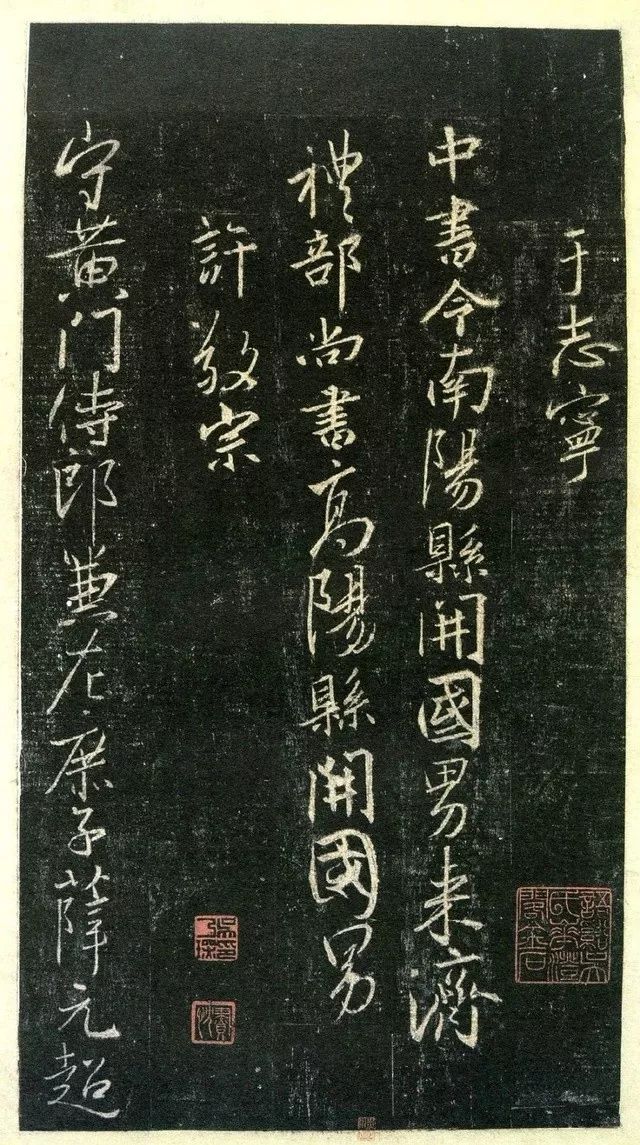 于志寧
中書令南陽縣開國男来濟
禮部尚書高陽縣開國男
許敬宗
守黃门侍郎兼左庶子薛元超